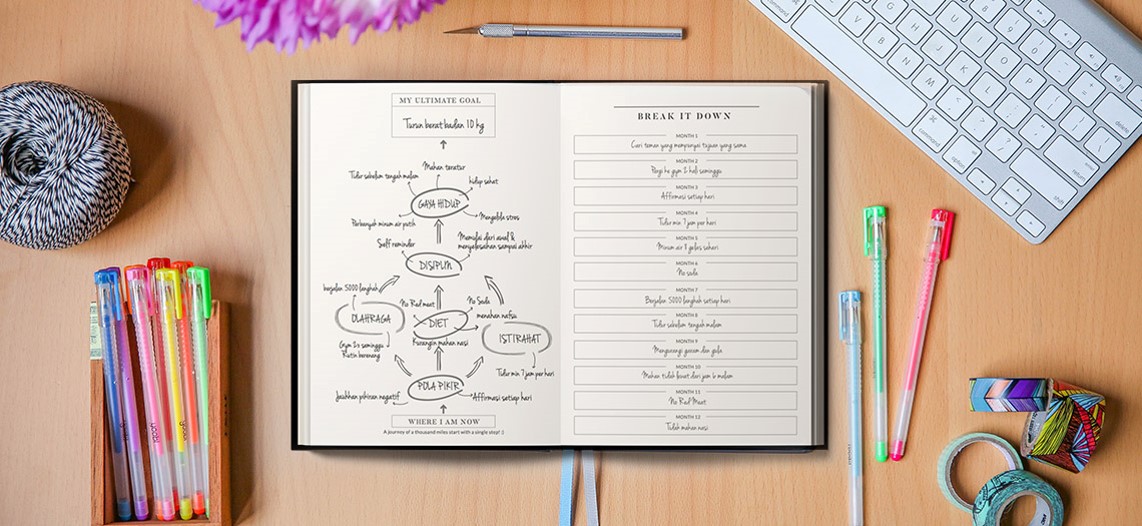 MY ULTIMATE GOAL
Turun berat badan 10 kg
Makan teratur
Tidur sebelum tengah malam
hidup sehat
GAYA HIDUP
Perbanyak minum air putih
Mengelola stres
Self reminder
Memulai dari awal &
menyelesaikan sampai akhir
DISIPLIN
berjalan 5000 langkah
No Red Meat
No Soda
menahan nafsu
OLAHRAGA
DIET
ISTIRAHAT
Kurangin makan nasi
Gym 2x seminggu
Rutin berenang
Tidur min 7 jam per hari
POLA PIKIR
Jauhkan pikiran negatif
Affirmasi setiap hari
WHERE I AM NOW
A journey of a thousand miles start with a single step! :)
BREAK IT DOWN
MONTH 1
Cari teman yang mempunyai tujuan yang sama
MONTH 2
Pergi ke gym 2 kali seminggu
MONTH 3
Affirmasi setiap hari
MONTH 4
Tidur min 7 jam per hari
MONTH 5
Minum air 8 gelas sehari
MONTH 6
No soda
MONTH 7
Berjalan 5000 langkah setiap hari
MONTH 8
Tidur sebelum tengah malam
MONTH 9
Mengurangi garam dan gula
MONTH 10
Makan tidak lewat dari jam 6 malam
MONTH 11
No Red Meat
MONTH 12
Tidak makan nasi
command
V
B
N
M
G
H
J
K
L
Y
U
I
O
P
command
option
delete
return
shift